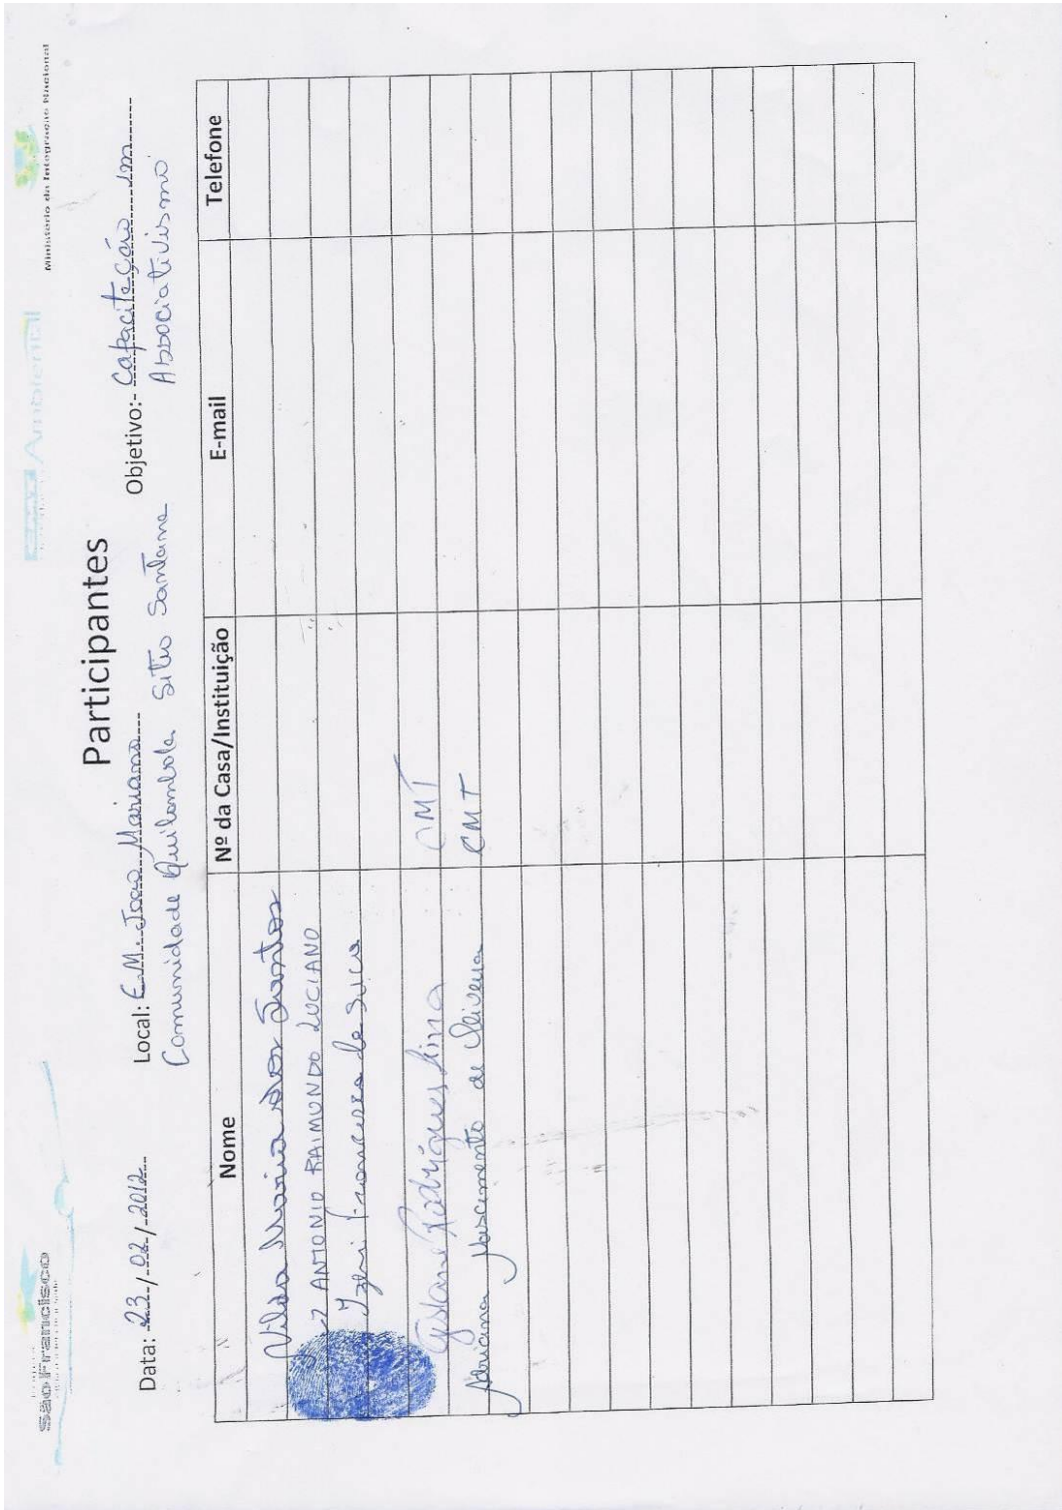 São Francisco
Ambiental
Ministério da Integração Nacional
Participantes
Data: 23/02/2012 Local: E.M. João Mariano Objetivo:- Capacitação em
Comunidade Quilombola Sitio Santana Associativismo
Nome Nº da Casa/Instituição E-mail Telefone
Nilda Maria dos Santos
ANTONIO RAIMUNDO LUCIANO
Francisca de
Rodrigues Lima CMT
Adriana Nascimento de Oliveira CMT